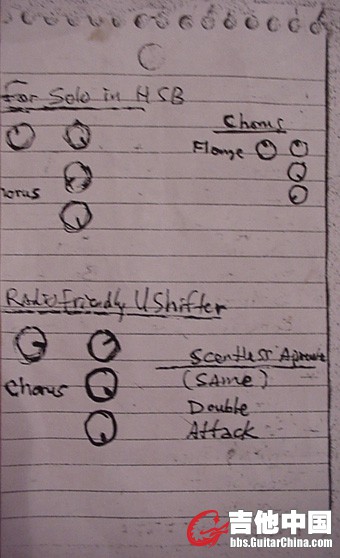 For Solo in HSB
Chorus
Flange
horus
Radio Friendly U Shifter
Scentless Aprentice
(SAme)
Chorus
Double
Attack
吉他中国
bbs.GuitarChina.com